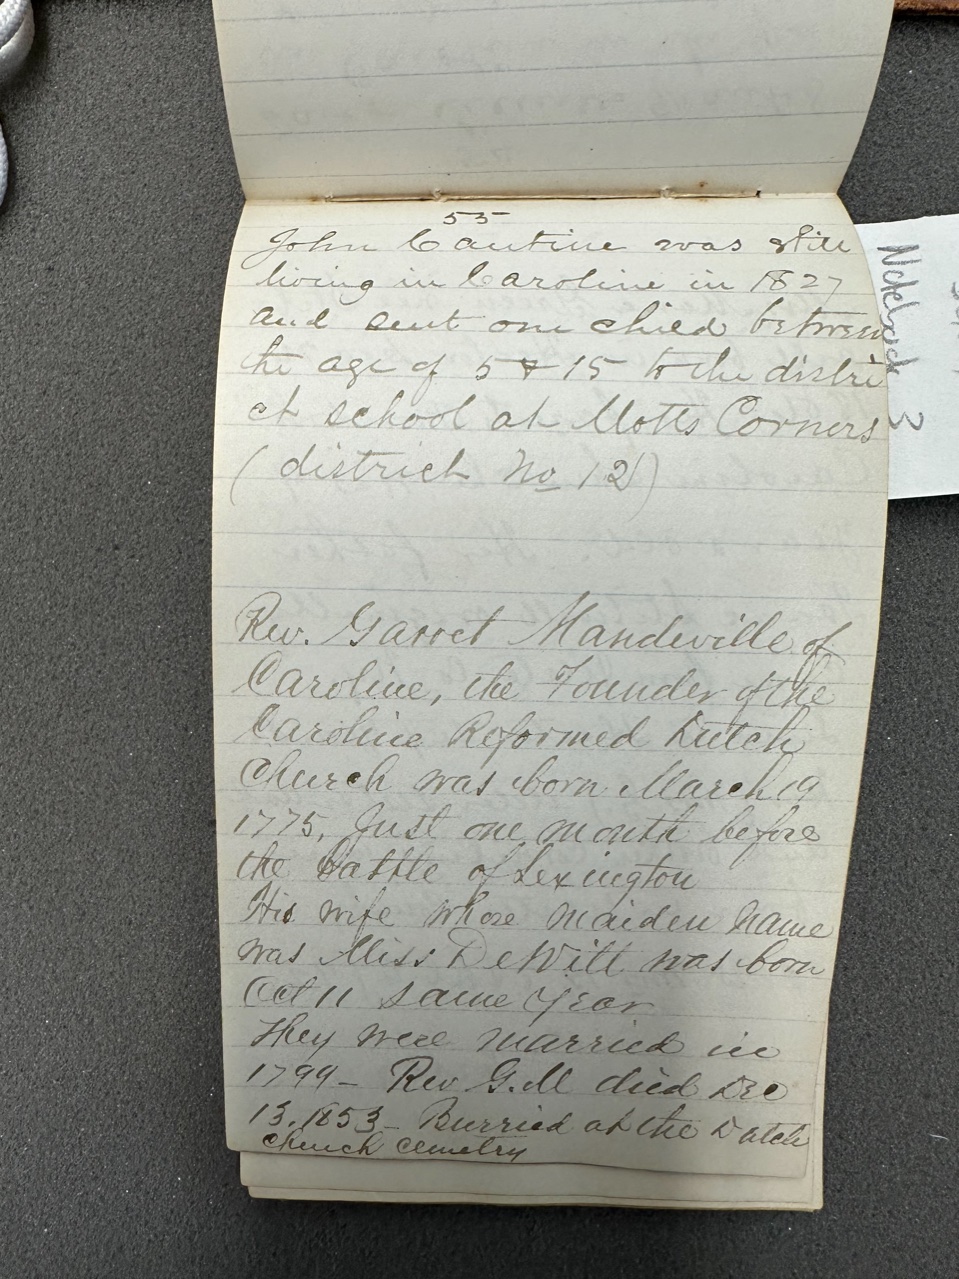 55
John Cantine was still
living in Caroline in 1827
and sent one child between
the age of 5 & 15 to the distri
ct school at Motts Corners
(district No 12)
Rev. Garret Mandeville of
Caroline, the Founder of the
Caroline Reformed Dutch
Church was born March 19
1775, Just one month before
the battle of Lexington
His wife whose maiden name
was Miss DeWitt was born
Oct 11 same year
They were married in
1799- Rev G.M died Dec
13.1853- Burried at the Dutch
church cemetry
Notebook 3